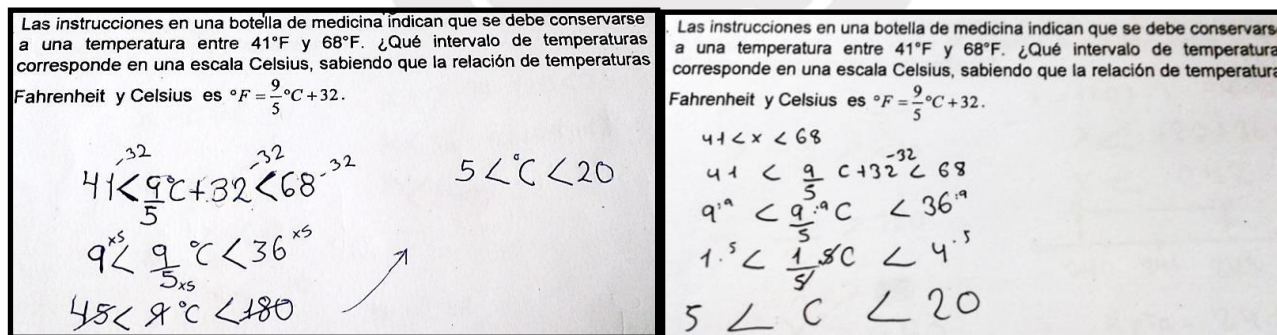 Las instrucciones en una botella de medicina indican que se debe conservarse
a una temperatura entre 41°F y 68°F. ¿Qué intervalo de temperaturas
corresponde en una escala Celsius, sabiendo que la relación de temperaturas
Fahrenheit y Celsius es °F = 9/5 °C + 32.
-32 -32 -32
41 < 9/5 °C + 32 < 68
9 x5 < 9/5 x5 °C < 36 x5
45 < 9 °C < 180
5 < °C < 20
Las instrucciones en una botella de medicina indican que se debe conservars
a una temperatura entre 41°F y 68°F. ¿Qué intervalo de temperatura
corresponde en una escala Celsius, sabiendo que la relación de temperatura
Fahrenheit y Celsius es °F = 9/5 °C + 32.
41 < x < 68
-32
41 < 9/5 C + 32 < 68
9 :9 < 9/5 :9 C < 36 :9
1 .5 < 1/5 5C < 4 .5
5 < C < 20